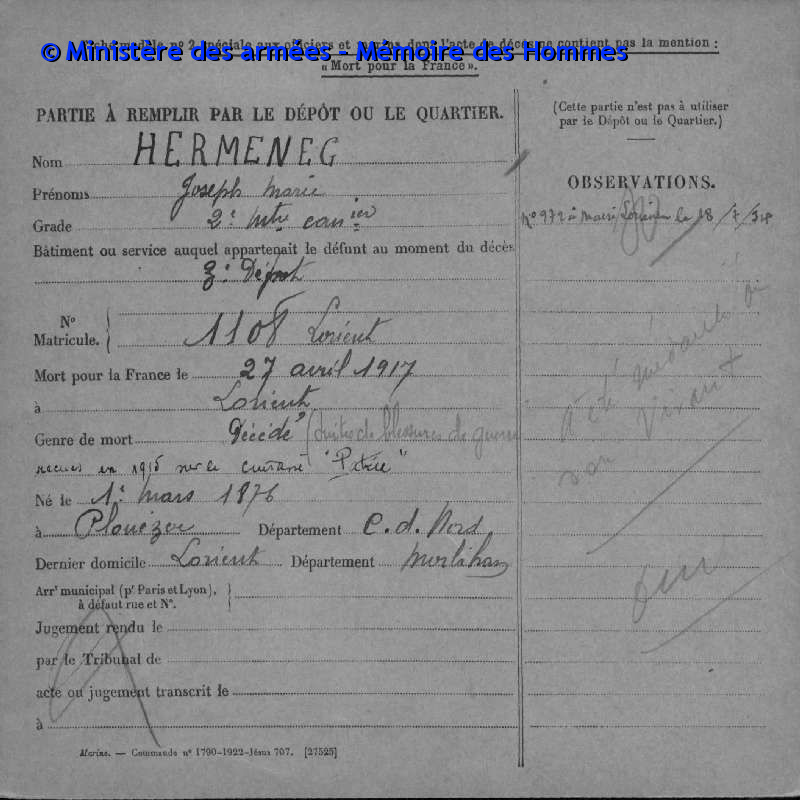 © Ministère des armées - Mémoire des Hommes
Fiche modèle n° 2 spéciale aux officiers et marins dont l'acte de décès ne contient pas la mention :
« Mort pour la France ».
PARTIE À REMPLIR PAR LE DÉPÔT OU LE QUARTIER.
Nom HERMENEG
Prénoms Joseph Marie
Grade 2e Mtre canier
Bâtiment ou service auquel appartenait le défunt au moment du décès
3e Dépot
N° Matricule. { 1108 Lorient
Mort pour la France le 27 avril 1917
à Lorient
Genre de mort Décédé (suites de blessures de guerre
recues en 1915 sur le cuirassé "
Né le 1er mars 1876
à Plouézec Département C. d. Nord
Dernier domicile Lorient Département Morbihan
Arrt municipal (pr Paris et Lyon),
à défaut rue et N°. }
Jugement rendu le
par le Tribunal de
acte ou jugement transcrit le
à
Marine. — Commande n° 1790-1922-Jésus 707. [27525]
(Cette partie n'est pas à utiliser
par le Dépôt ou le Quartier.)
OBSERVATIONS.
N° 972 à Mairie Lorient le 18/7/
a été médaillé
son vivant